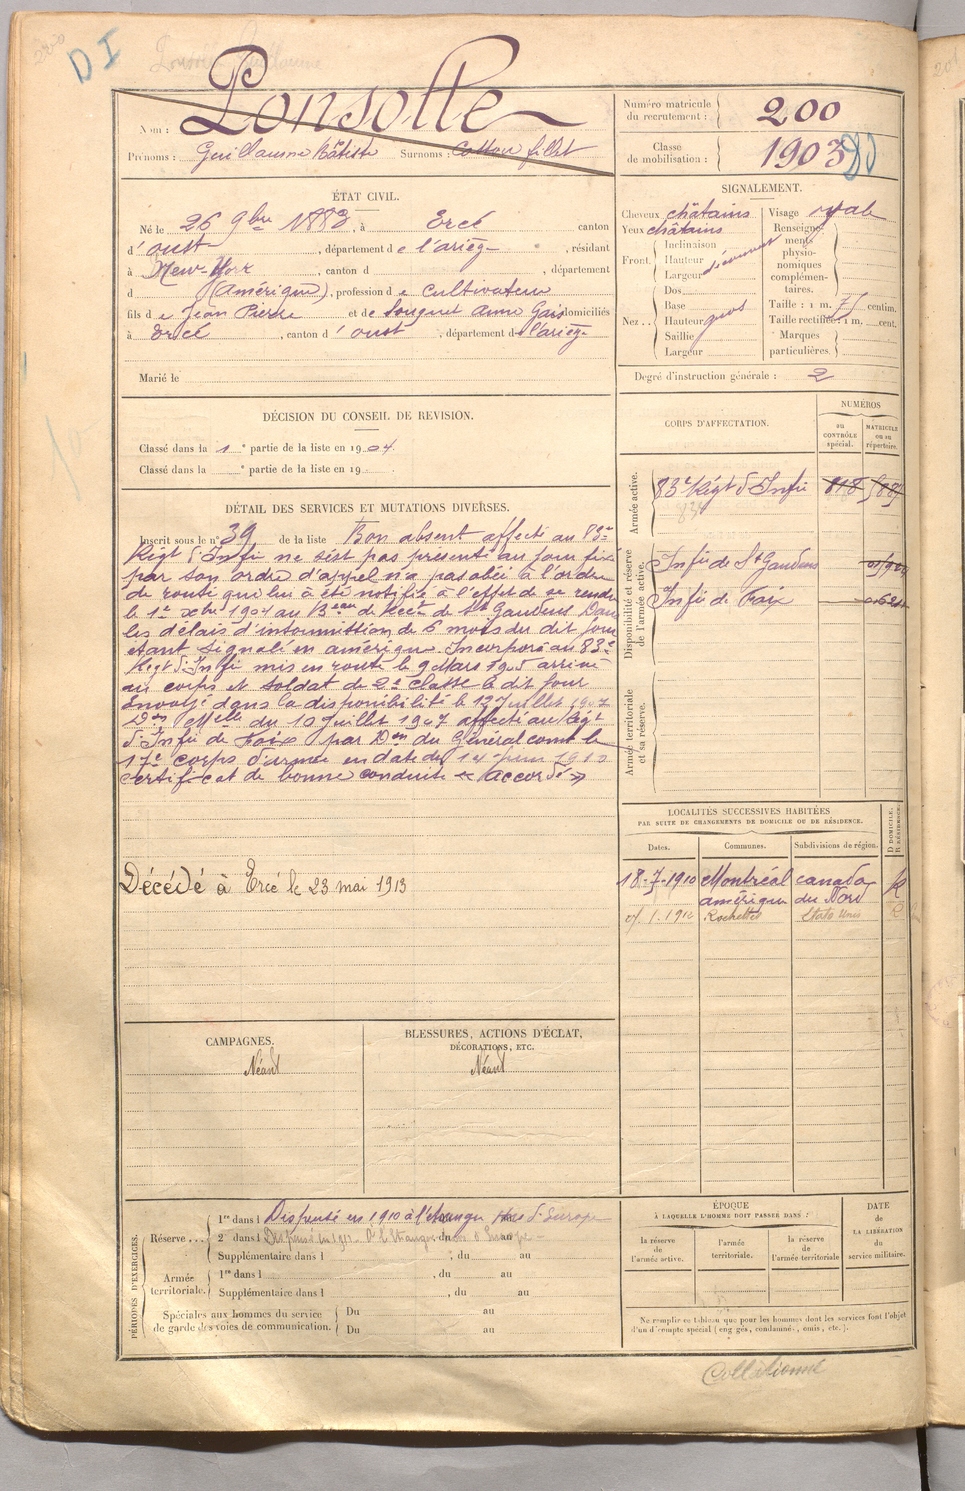 DI
Nom : Ponsolle
Prénoms : Guillaume Bâtiste Surnoms :
Numéro matricule du recrutement : 200
Classe de mobilisation : 1903
ÉTAT CIVIL.
Né le 26 9bre 1883, à Ercé canton
d'oust, département de l'ariège, résidant
à New-York, canton d , département
d (Amérique), profession de Cultivateur
fils de Jean Pierre et de Souquet Anne domiciliés
à Ercé, canton d'oust, département de l'ariège
Marié le
SIGNALEMENT.
Cheveux châtains
Yeux châtains
Front. Inclinaison
Hauteur
Largeur
Nez .. Dos
Base
Hauteur gros
Saillie
Largeur
Visage ovale
Renseignements physionomiques complémentaires.
Taille : 1 m. 71 centim.
Taille rectifiée : 1 m. cent.
Marques particulières.
Degré d'instruction générale : 2
DÉCISION DU CONSEIL DE REVISION.
Classé dans la 1e partie de la liste en 1904.
Classé dans la e partie de la liste en 19 .
DÉTAIL DES SERVICES ET MUTATIONS DIVERSES.
Inscrit sous le n° 39 de la liste Bon absent affecté au 83e
Régt d'Infie ne s'est pas présenté au jour fixé
par son ordre d'appel n'a pas obéi à l'ordre
de route qui lui a été notifié à l'effet de se rendre
le 1er Xbre 1904 au Beau de Rect de St Gaudens Dans
les délais d'insoumission de 6 mois du dit jour
étant signalé en amérique. Incorporé au 83e
Régt d'Infie mis en route le 9 Mars 1905 arrivé
au corps et soldat de 2e classe le dit jour
Envoyé dans la disponibilité le 12 Juillet 1907
Don Melle du 10 Juillet 1907 affecté au Régt
d'Infie de Foix par Don du Général comt le
17e corps d'armée en date du 14 juin 1910
certificat de bonne conduite « accordé »
Décédé à Ercé le 23 mai 1913
CORPS D'AFFECTATION.
NUMÉROS
au CONTRÔLE spécial.
MATRICULE ou au répertoire.
Armée active.
83e Régt d'Infie 818
Disponibilité et réserve de l'armée active.
Infie de St Gaudens
Infie de Foix
Armée territoriale et sa réserve.
LOCALITÉS SUCCESSIVES HABITÉES
PAR SUITE DE CHANGEMENTS DE DOMICILE OU DE RÉSIDENCE.
Dates. Communes. Subdivisions de région. D DOMICILE. R RÉSIDENCE.
18-7-1910 Montréal canada R
amérique du Nord
Etats Unis R
CAMPAGNES.
Néant
BLESSURES, ACTIONS D'ÉCLAT,
DÉCORATIONS, ETC.
Néant
PÉRIODES D'EXERCICES.
Réserve .... 1re dans l Dispensé en 1910 à l'étranger Hors d'Europe
2e dans l , du au
Supplémentaire dans l , du au
Armée territoriale. 1re dans l , du au
Supplémentaire dans l , du au
Spéciales aux hommes du service de garde des voies de communication. Du au
Du au
ÉPOQUE
À LAQUELLE L'HOMME DOIT PASSER DANS :
la réserve de l'armée active.
l'armée territoriale.
la réserve de l'armée territoriale
DATE de LA LIBÉRATION du service militaire.
Ne remplir ce tableau que pour les hommes dont les services font l'objet
d'un décompte spécial (engagés, condamné, omis, etc.).
Collationné